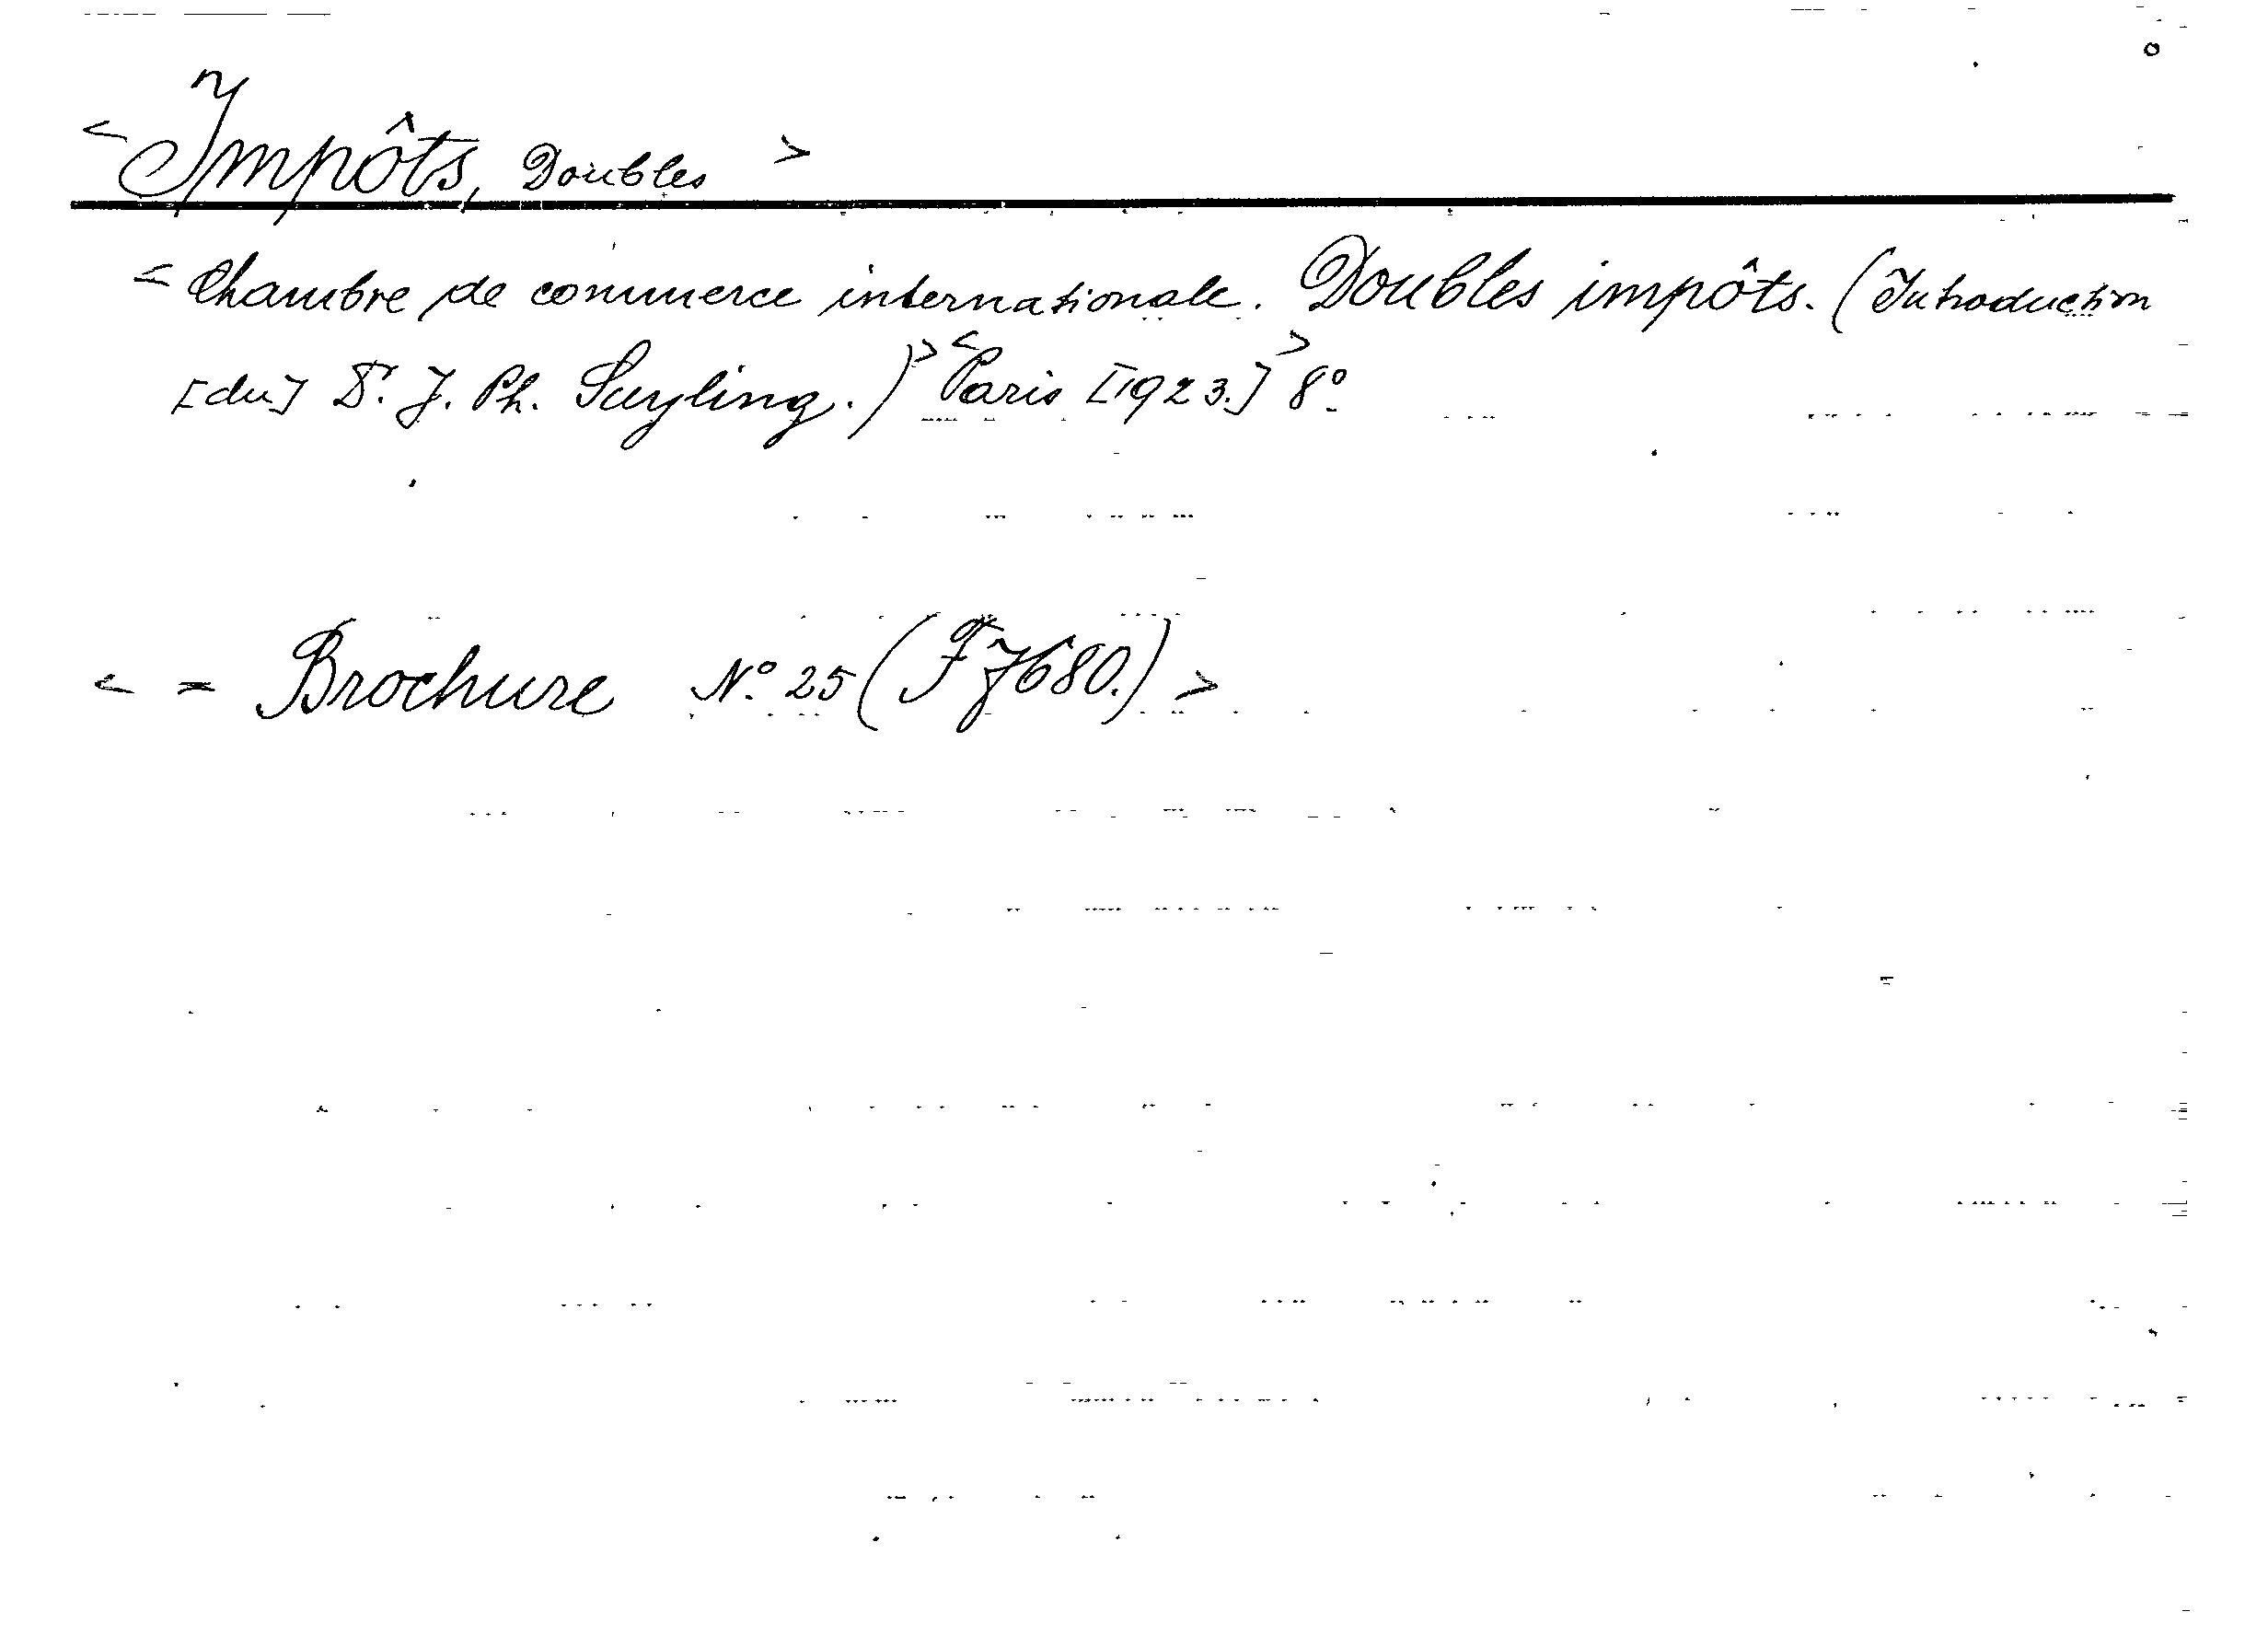 < Impôts, Doubles >
< Chambre de commerce internationale. Doubles impôts. (Introduction
[du] Dr. J. Ph. Suyling.) > < Paris [1923.] > 8º
< = Brochure Nº 25 (F 7680.) >